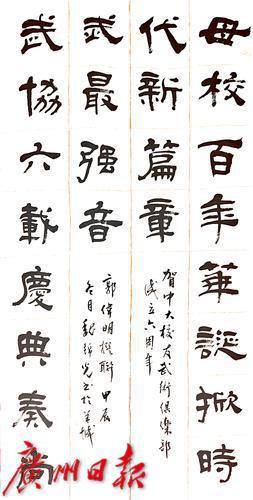 母校百年華誕掀時
代新篇章
賀中大校友武術俱樂部
成立六周年
武協六載慶典奏尚
武最强音
郭偉明撰聯 甲辰
冬月 光书於羊城
廣州日報